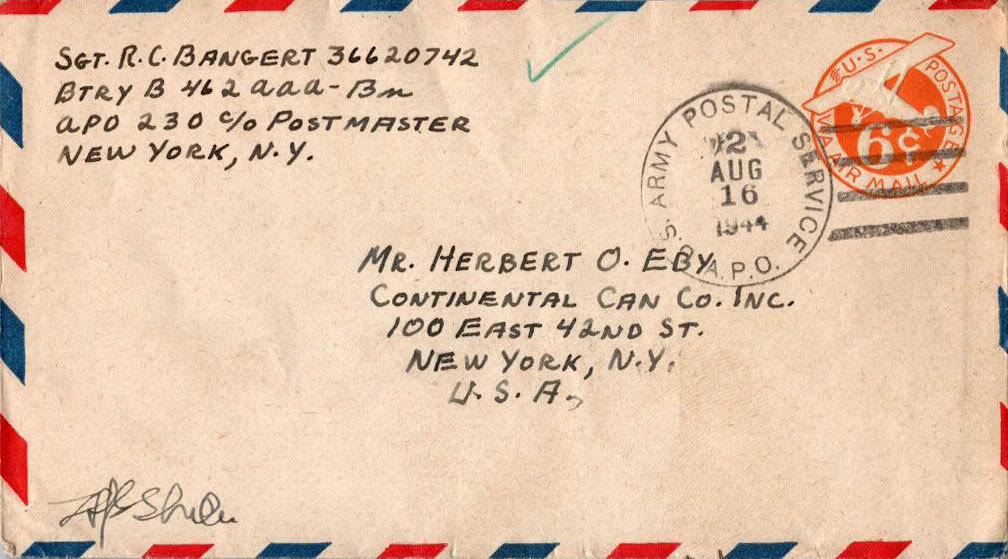 SGT. R. C. BANGERT 36620742
BTRY B 462 AAA-Bn
APO 230 c/o POSTMASTER
NEW YORK, N.Y.
U.S. POSTAGE
6¢
VIA AIR MAIL
U.S. ARMY POSTAL SERVICE
2
AUG
16
1944
A.P.O.
MR. HERBERT O. EBY
CONTINENTAL CAN CO. INC.
100 EAST 42ND ST.
NEW YORK, N.Y.
U.S.A.